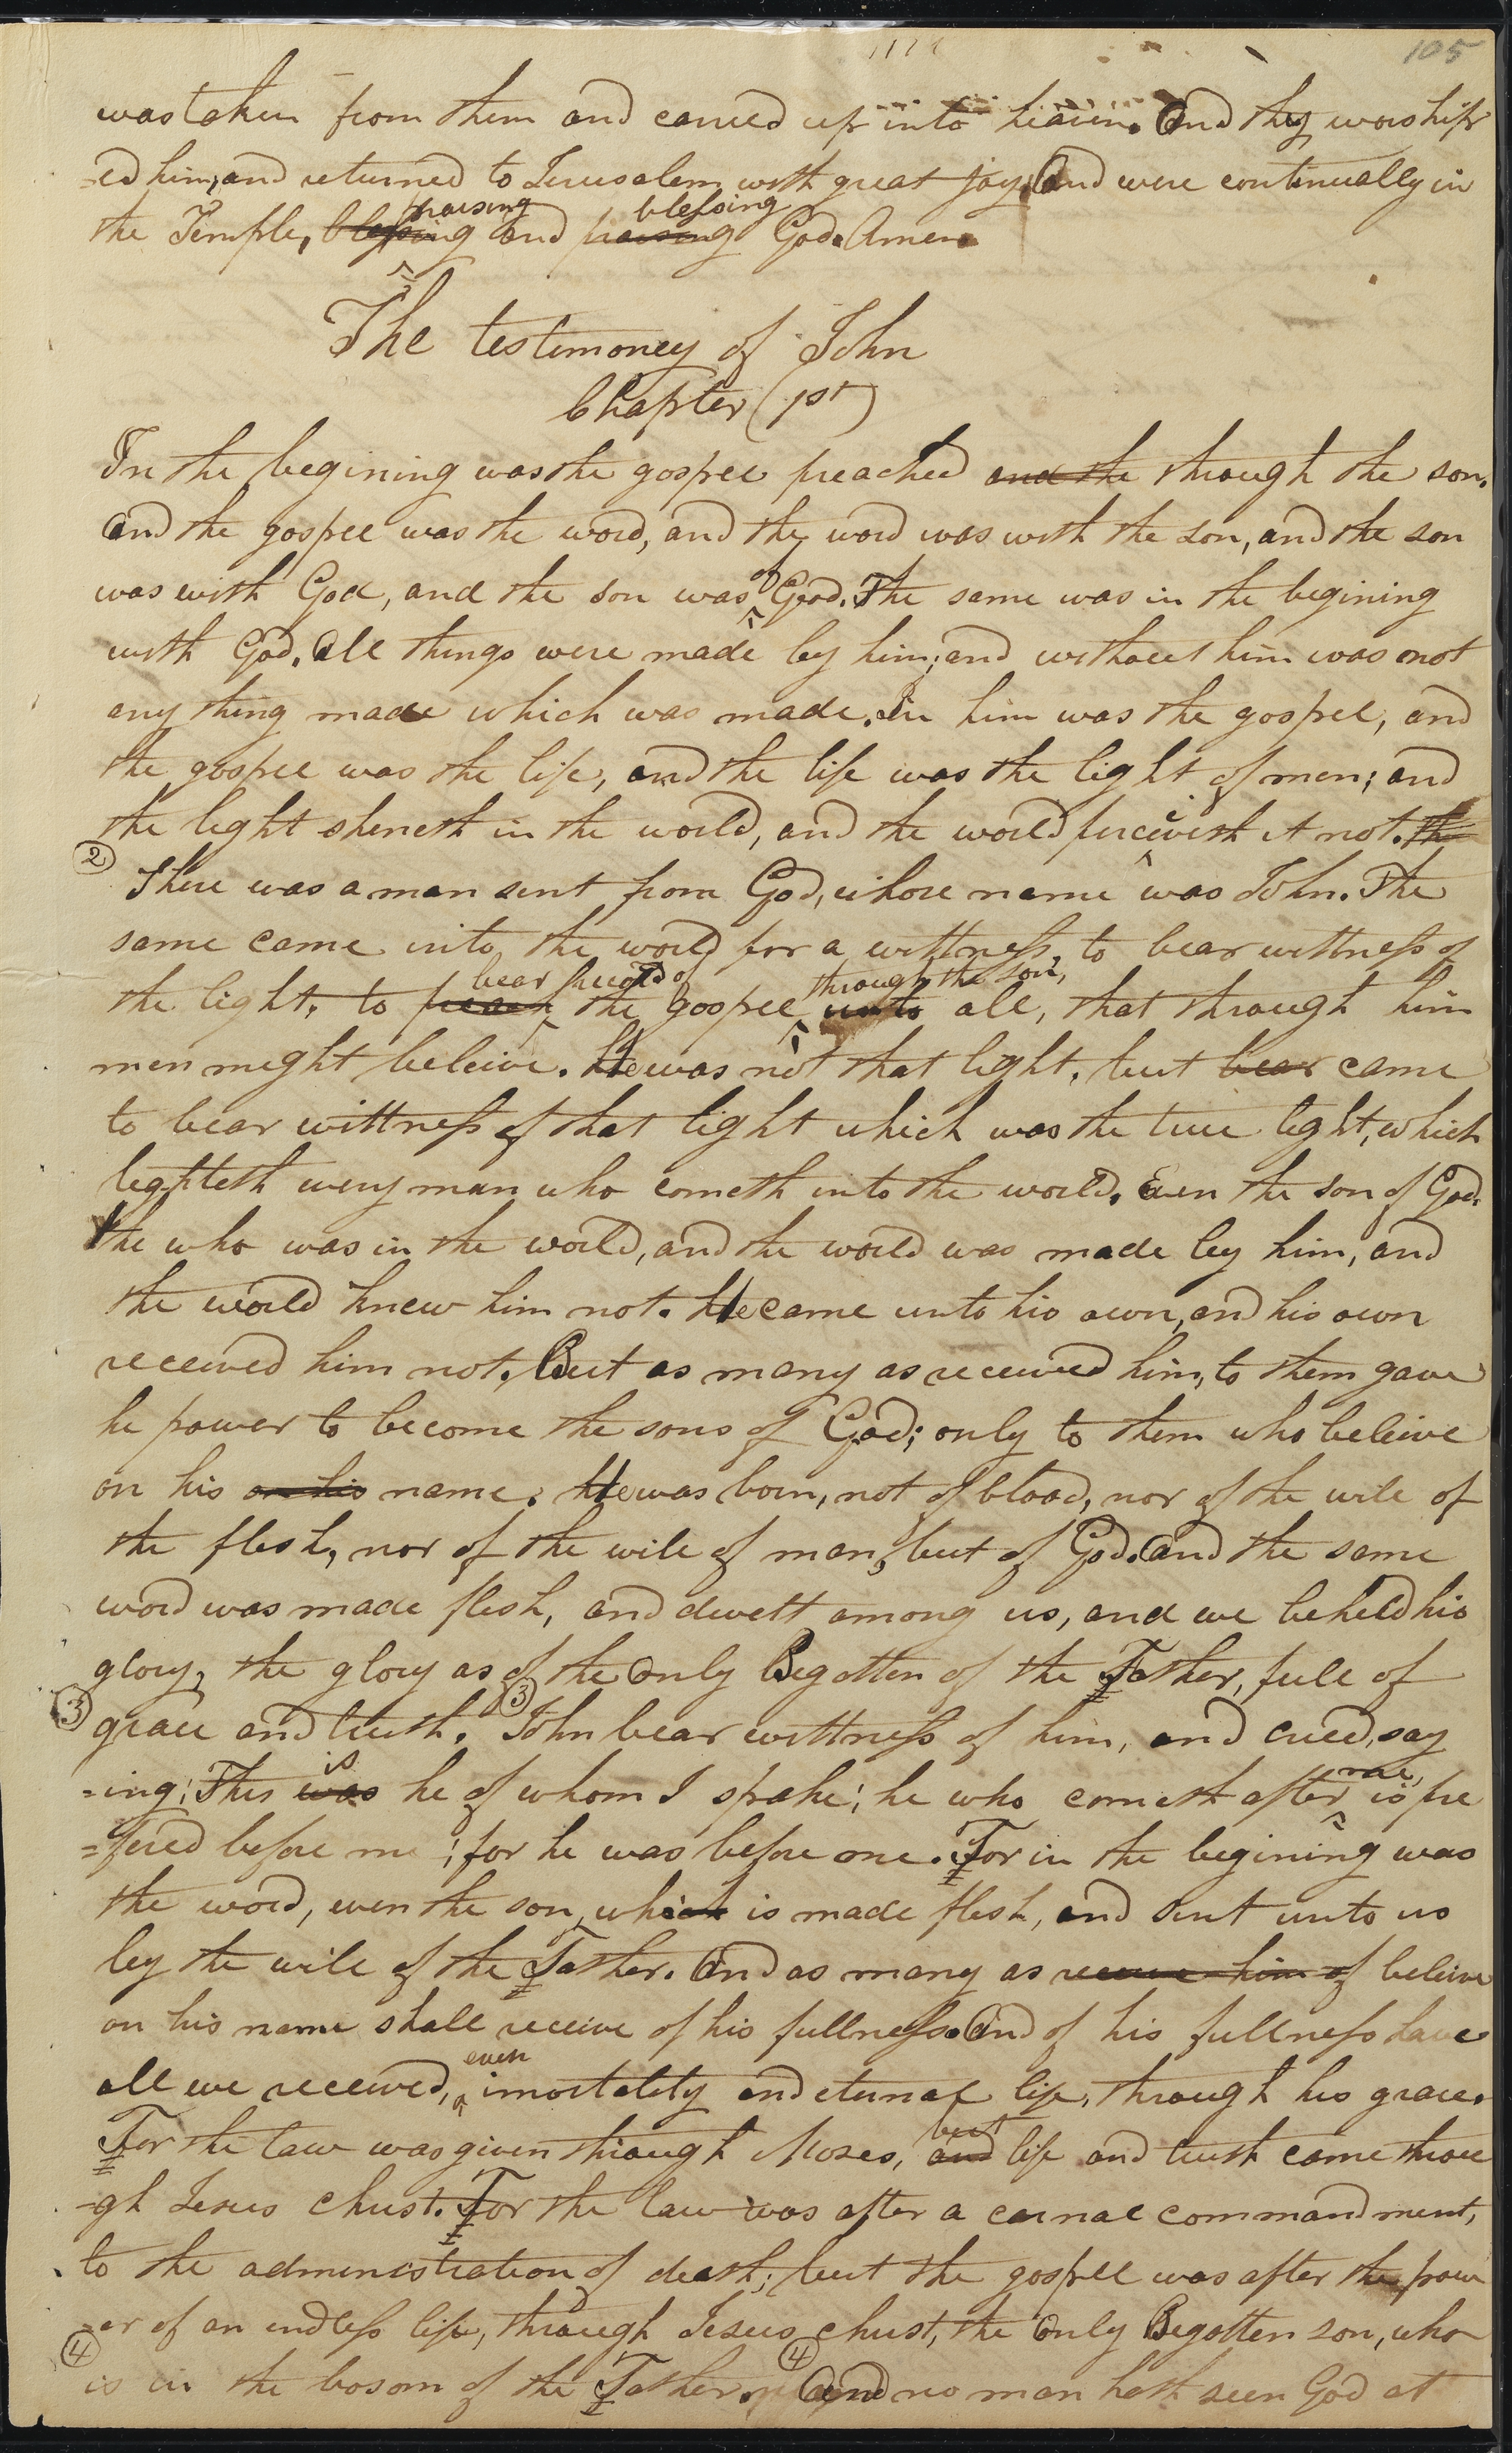 105
was taken from them and carried up into heaven. And they worship
=ed him, and returned to Jerusalem with great joy. And were continually in
praising blessing
the Temple, blessing and praising God. Amen
The testimoney of John
Chapter (1st)
In the begining was the gospel preached and the through the son.
And the gospel was the word, and the word was with the son, and the son
of
was with God, and the son was God. The same was in the begining
with God. All things were made by him; and without him was not
any thing made which was made. In him was the gospel, and
the gospel was the life, and the life was the light of men; and
the light shineth in the world, and the world perceiveth it not. The
2 There was a man sent from God, whose name was John. The
same came into the world for a wittness, to bear wittness of
bear record of through the son,
the light, to preach the gospel unto all, that through him
men might beleive. He was not that light, but bear came
to bear wittness of that light which was the true light, which
lighteth every man who cometh into the world. Even the son of God.
He who was in the world, and the world was made by him, and
the world knew him not. He came unto his own, and his own
received him not. But as many as received him, to them gave
he power to become the sons of God; only to them who beleive
on his on his name. He was born, not of blood, nor of the will of
the flesh, nor of the will of man, but of God. And the same
word was made flesh, and dwelt among us, and we beheld his
glory, the glory as of the Only Begotten of the Father, full of
3 grace and truth. 3 John bear wittness of him, and cried, say
is me,
=ing; This was he of whom I spake; he who cometh after is pre
=fered before me; for he was before me. For in the begining was
the word, even the son, which is made flesh, and sent unto us
by the will of the Father. And as many as receive him of beleive
on his name shall receive of his fullness. And of his fullness have
even
all we received, imortality and eternal life, through his grace.
but
For the law was given through Moses, and life and truth came throu
=gh Jesus Christ. For the law was after a carnal commandment,
to the administration of death; but the gospel was after the pow
=er of an endless life, through Jesus Christ, the Only Begotten son, who
4 is in the bosom of the Father. 4 And no man hath seen God at